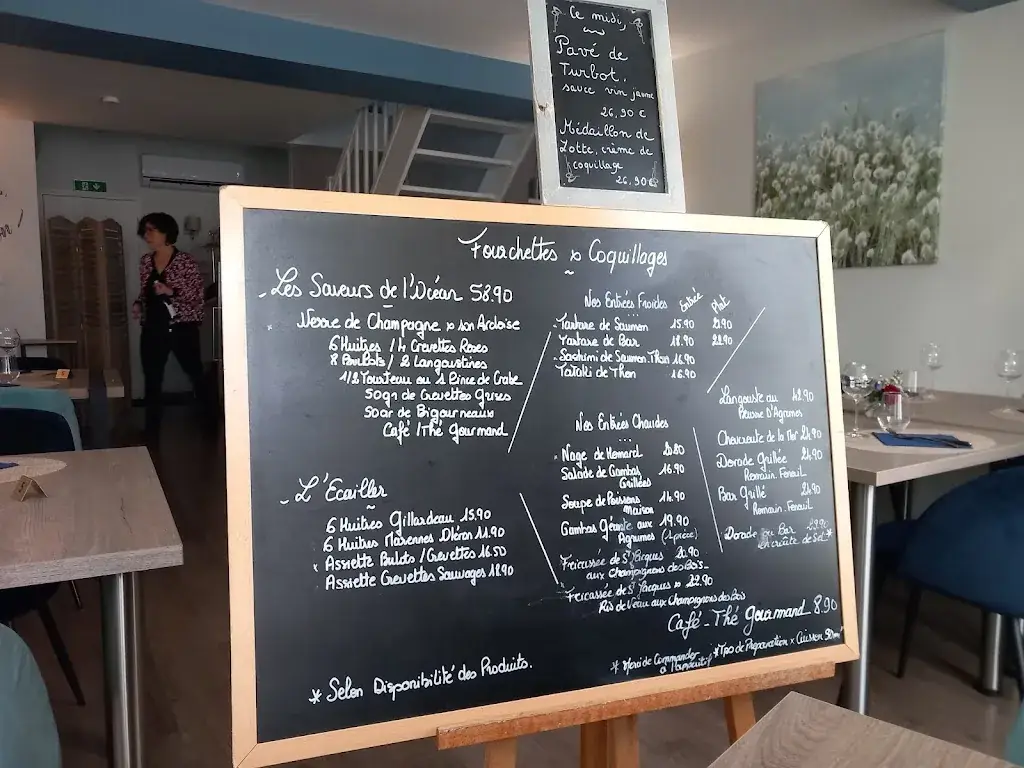 Ce midi,
Pavé de
Turbot,
sauce vin jaune
26,90 €
Médaillon de
Lotte, crème de
coquillage
26,90 €
Fourchettes & Coquillages
Les Saveurs de l'Océan 58.90
Verre de Champagne & son Ardoise
6 Huîtres / 4 Crevettes Roses
8 Bulots / 2 Langoustines
1/2 Tourteau ou 1 Pince de Crabe
50gr de Crevettes Grises
50gr de Bigourneaux
Café / Thé Gourmand
L'Ecailler
6 Huîtres Gillardeau 15.90
6 Huîtres Marennes Oléron 11.90
* Assiette Bulots / Crevettes 16.50
Assiette Crevettes Sauvages 18.90
* Selon Disponibilité des Produits.
Nos Entrées Froides Entrée Plat
Tartare de Saumon 15.90
Tartare de Bar 18.90
Sashimi de Saumon Thon 16.90
Tataki de Thon 16.90
Nos Entrées Chaudes
Nage de Homard
Salade de Gambas 16.90
Grillées
Soupe de Poissons 14.90
Maison
Gambas Géante aux 19.90
Agrumes
Fricassée de St Jacques
aux Champignons des Bois
Fricassée de St Jacques & 22.90
Ris de Veau aux Champignons des Bois
Langouste au
Beurre D'Agrumes
Choucroute de la Mer 24.90
Dorade Grillée 24.90
Romarin. Fenouil
Bar Grillé 24.90
Romarin. Fenouil
Dorade ou Bar
en croûte de Sel *
Café - Thé Gourmand 8.90
* Merci de Commander
à l'apéritif
* Tps de Préparation & Cuisson 50mn